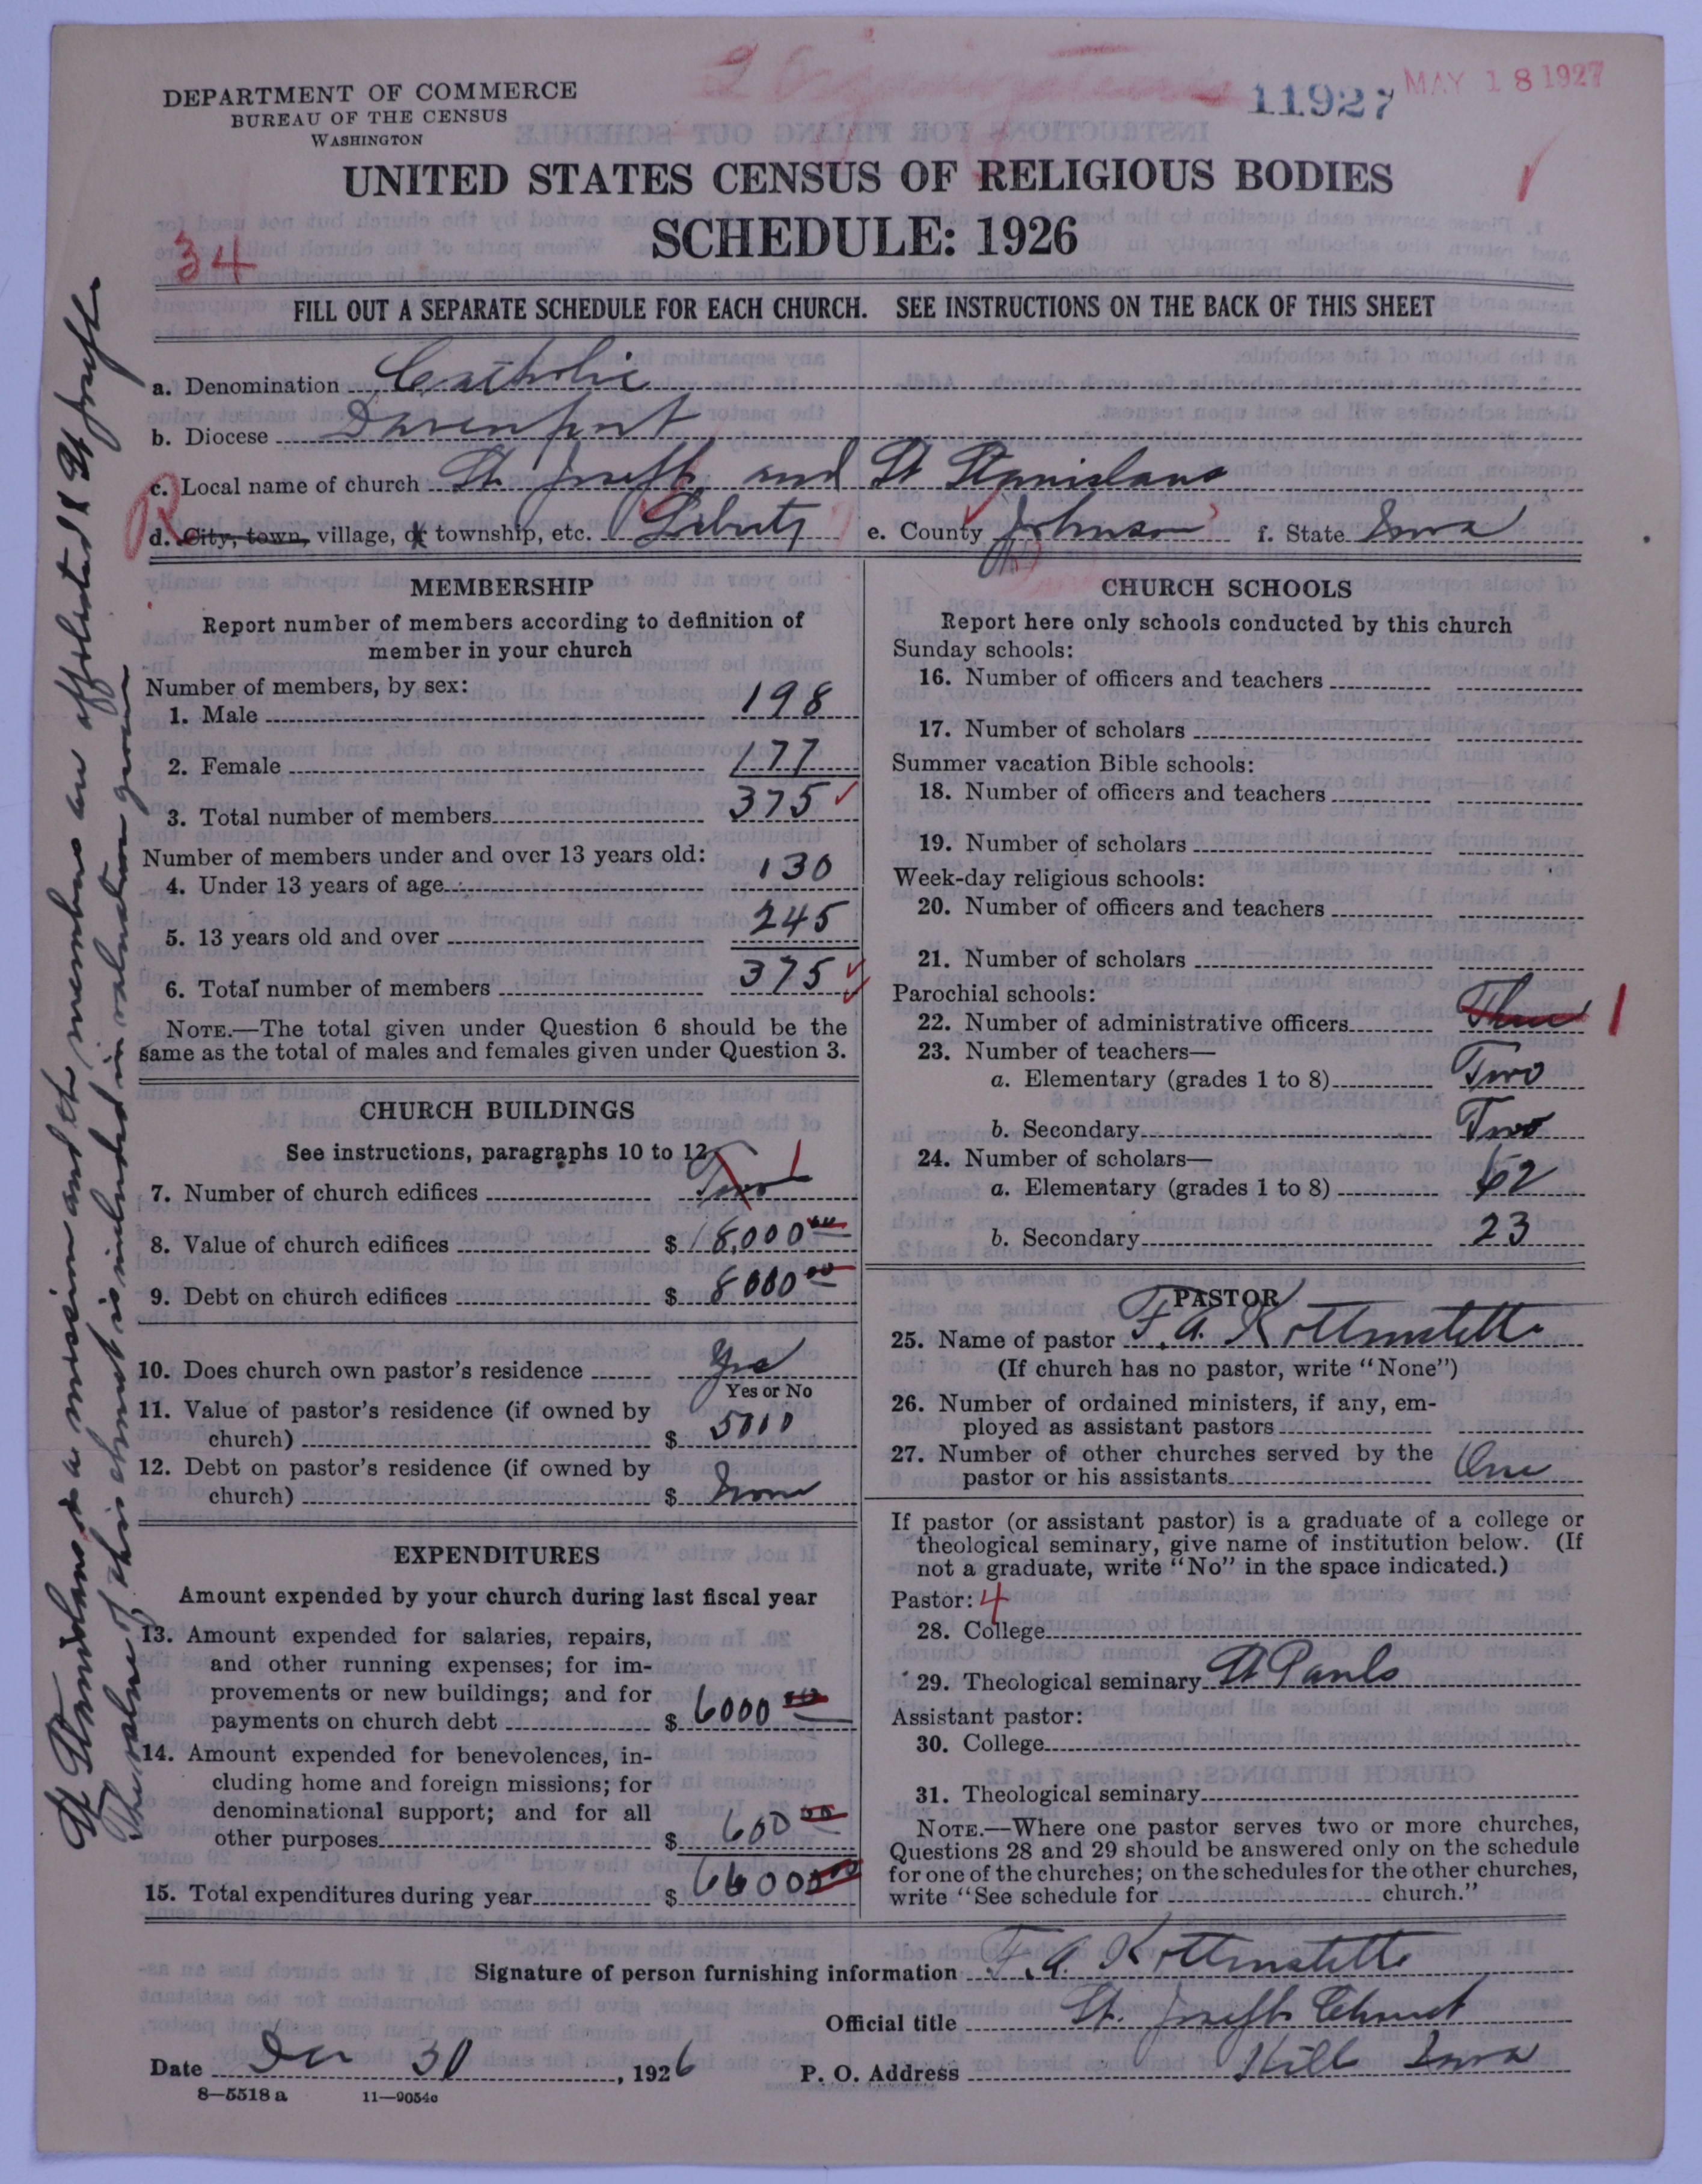 11927 MAY 18 1927
DEPARTMENT OF COMMERCE
BUREAU OF THE CENSUS
WASHINGTON
UNITED STATES CENSUS OF RELIGIOUS BODIES
SCHEDULE: 1926
34
FILL OUT A SEPARATE SCHEDULE FOR EACH CHURCH. SEE INSTRUCTIONS ON THE BACK OF THIS SHEET
a. Denomination Catholic
b. Diocese Davenport
c. Local name of church St. Joseph and St Stanislaus
R
d. City, town, village, or township, etc. Liberty e. County Johnson f. State Iowa
MEMBERSHIP
Report number of members according to definition of
member in your church
Number of members, by sex:
1. Male 198
2. Female 177
3. Total number of members 375
Number of members under and over 13 years old:
4. Under 13 years of age 130
5. 13 years old and over 245
6. Total number of members 375
NOTE.—The total given under Question 6 should be the
same as the total of males and females given under Question 3.
CHURCH BUILDINGS
See instructions, paragraphs 10 to 12
7. Number of church edifices Two 1
8. Value of church edifices $ 18,000 00
9. Debt on church edifices $ 8000 00
10. Does church own pastor's residence Yes
Yes or No
11. Value of pastor's residence (if owned by
church) $ 5000
12. Debt on pastor's residence (if owned by
church) $ None
EXPENDITURES
Amount expended by your church during last fiscal year
13. Amount expended for salaries, repairs,
and other running expenses; for im-
provements or new buildings; and for
payments on church debt $ 6000 00
14. Amount expended for benevolences, in-
cluding home and foreign missions; for
denominational support; and for all
other purposes $ 600 00
15. Total expenditures during year $ 6600 00
CHURCH SCHOOLS
Report here only schools conducted by this church
Sunday schools:
16. Number of officers and teachers
17. Number of scholars
Summer vacation Bible schools:
18. Number of officers and teachers
19. Number of scholars
Week-day religious schools:
20. Number of officers and teachers
21. Number of scholars
Parochial schools:
22. Number of administrative officers Three 1
23. Number of teachers—
a. Elementary (grades 1 to 8) Two
b. Secondary Two
24. Number of scholars—
a. Elementary (grades 1 to 8) 62
b. Secondary 23
PASTOR
25. Name of pastor F. A. Kottenstette
(If church has no pastor, write "None")
26. Number of ordained ministers, if any, em-
ployed as assistant pastors
27. Number of other churches served by the
pastor or his assistants One
If pastor (or assistant pastor) is a graduate of a college or
theological seminary, give name of institution below. (If
not a graduate, write "No" in the space indicated.)
Pastor: 4
28. College
29. Theological seminary St Pauls
Assistant pastor:
30. College
31. Theological seminary
NOTE.—Where one pastor serves two or more churches,
Questions 28 and 29 should be answered only on the schedule
for one of the churches; on the schedules for the other churches,
write "See schedule for church."
Signature of person furnishing information F. A. Kottenstette
Official title St. Joseph Church
Date Dec 30, 1926 P. O. Address Hill Iowa
8—5518 a 11—9054c
St Stanislaus is a mission and the members are affiliated to St Joseph
The value of this church is included in valuation given